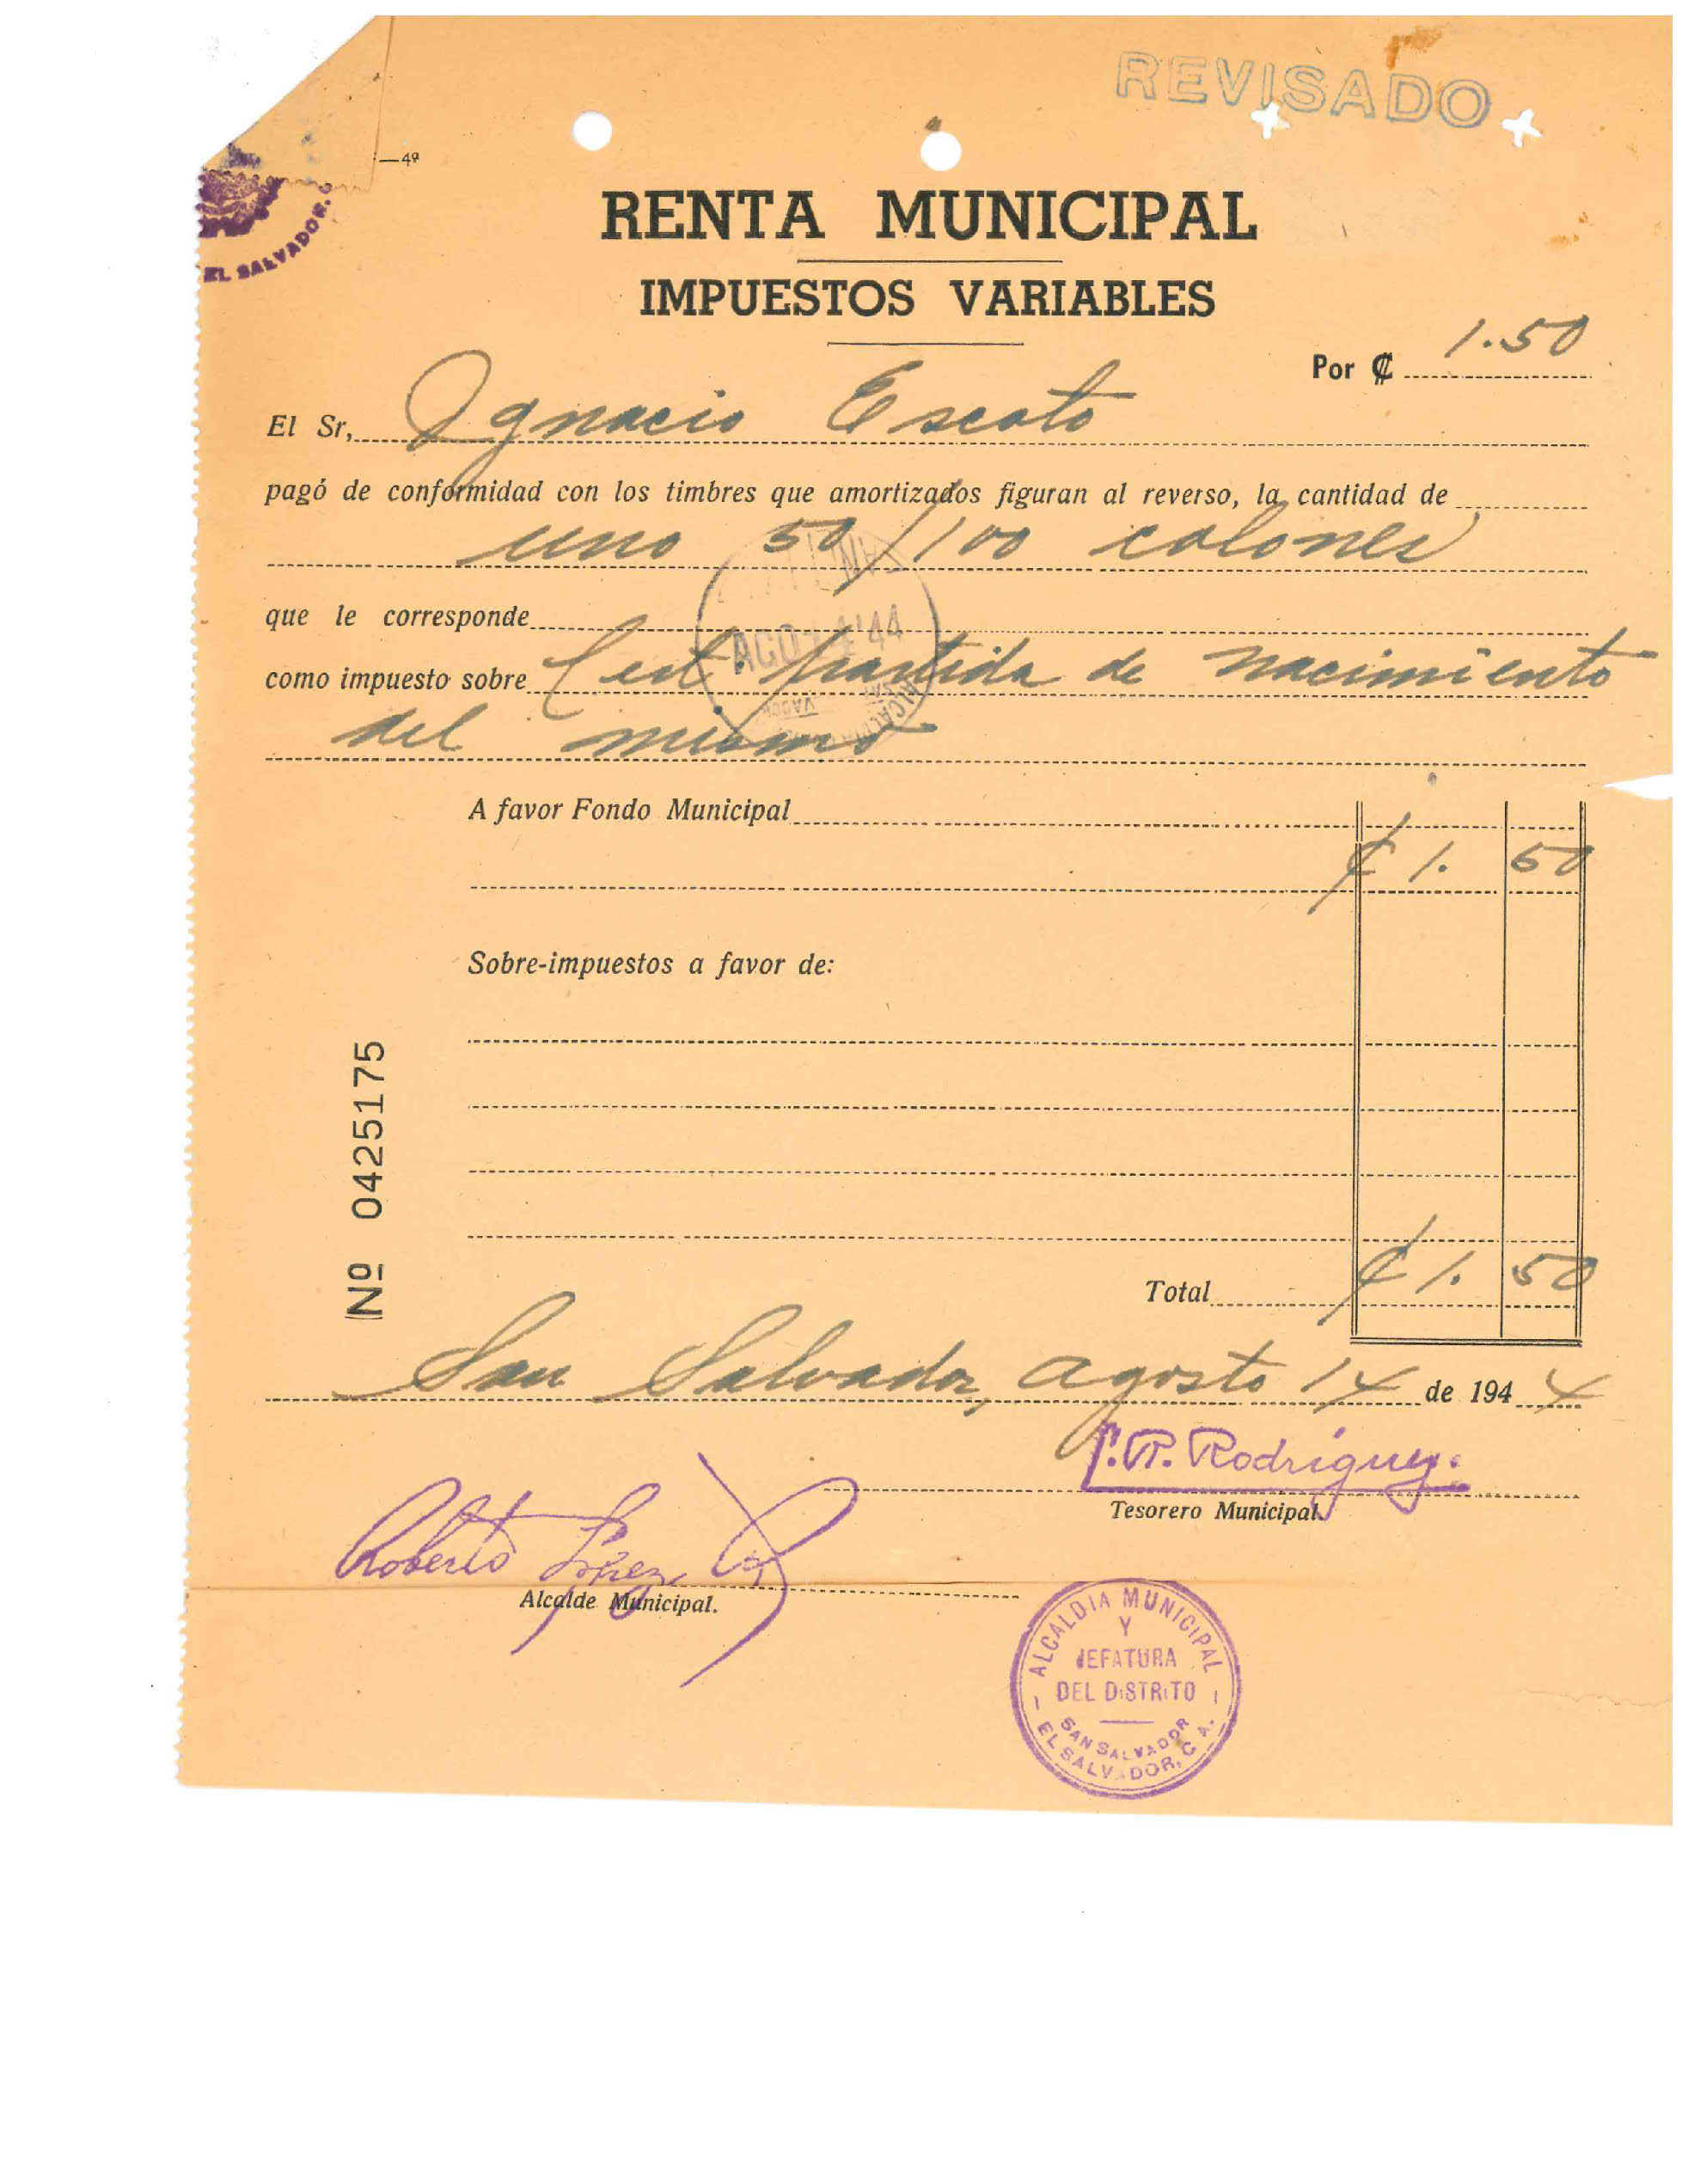 REVISADO
—4ª
EL SALVADOR.
RENTA MUNICIPAL
IMPUESTOS VARIABLES
Por ₡ 1.50
El Sr, Ignacio Escoto
pagó de conformidad con los timbres que amortizados figuran al reverso, la cantidad de
uno 50/100 colones
que le corresponde
AGO 14 '44
como impuesto sobre Cert. partida de nacimiento
del mismo
A favor Fondo Municipal
₡ 1. 50
Sobre-impuestos a favor de:
Nº 0425175
Total ₡ 1. 50
San Salvador, agosto 14 de 1944
Rodríguez.
Tesorero Municipal.
Roberto López
Alcalde Municipal.
ALCALDIA MUNICIPAL
Y
JEFATURA
DEL DISTRITO
SAN SALVADOR
EL SALVADOR, C A.